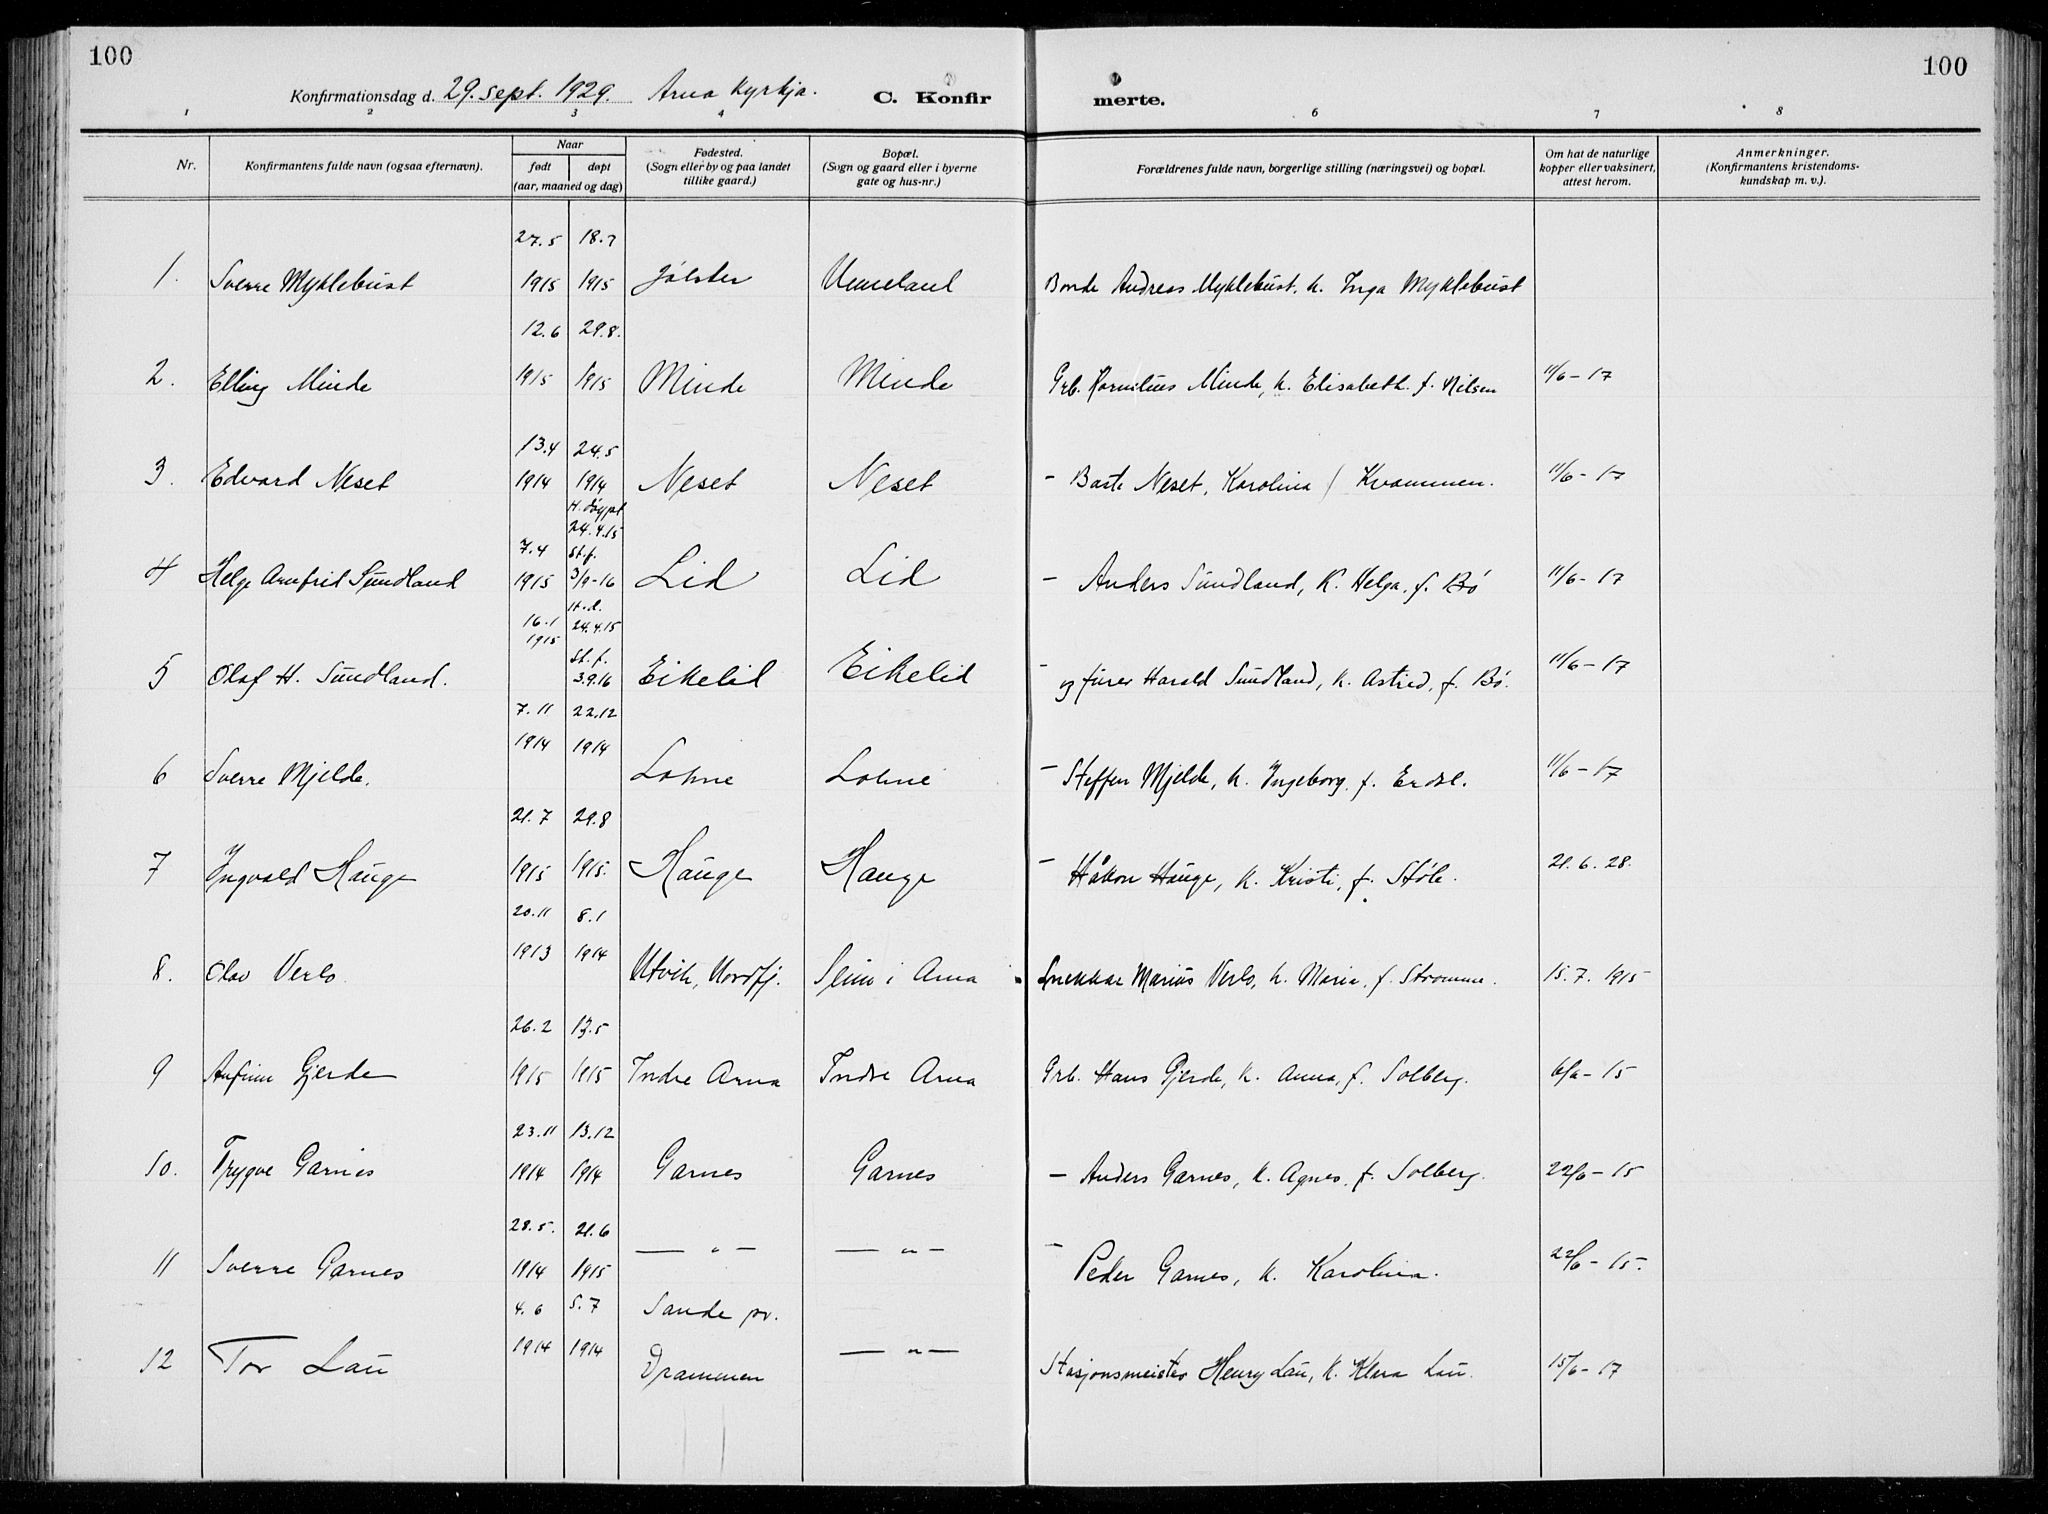 100
100
Konfirmationsdag d. 29. sept. 1929. Arna Kyrkja. C. Konfir merte.
1 2 3 4 6 7 8
Nr. Konfirmantens fulde navn (ogsaa efternavn). Naar født døpt (aar, maaned og dag) Fødested. (Sogn eller by og paa landet tillike gaard.) Bopæl. (Sogn og gaard eller i byerne gate og hus-nr.) Forældrenes fulde navn, borgerlige stilling (næringsvei) og bopæl. Om hat de naturlige kopper eller vaksinert, attest herom. Anmerkninger. (Konfirmantens kristendoms-kundskap m. v.).
27.5 18.7
1. Sverre Myklebust 1915 1915 Jølster Unneland Bonde Andreas Myklebust. k. Inga Myklebust
12.6 29.8.
2. Elling Minde 1915 1915 Minde Minde Grb. Kornelius Minde, k. Elisabeth. f. Nilsen 11/6 - 17
13.4 24.5
3. Edvard Neset 1914 1914 Neset Neset - Baste Neset, Karolina f Kvammen. 11/6 - 17
H. døypt
24.4.15
7.4 St.f.
4 Helge Arnfrid Sundland 1915 3/9-16 Lid Lid - Anders Sundland, K. Helga. f. Bø 11/6 - 17
H.d.
16.1 24.4.15
1915 St.f.
5 Olaf H. Sundland. 3.9.16 Eikelid Eikelid - og furer Harald Sundland, k. Astrid, f. Bø. 11/6 - 17
7.11 22.12
1914 1914
6 Sverre Mjelde. Lohne Lohne - Steffen Mjelde, k. Ingeborg. f. Erdal. 11/6 - 17
21.7 29.8
7 Yngvald Hauge 1915 1915. Hauge Hauge - Håkon Hauge, k. Kristi, f. Støle. 21. 6. 28.
20.11 8.1
1913 1914
8. Olav Verlo Utvik, Nordfj. Seim i Arna Snekkar Marius Verlo, k. Maria. f. Strømme. 15. 7. 1915
26.2 13.5
9 Anfinn Gjerde 1915 1915 Indre Arna Indre Arna Grb. Hans Gjerde, k. Anna, f. Solberg. - 15
23.11 13.12
10. Trygve Garnes 1914 1914 Garnes Garnes - Anders Garnes, k. Agnes. f. Solberg. 22/6 - 15
28.5. 21.6
11 Sverre Garnes 1914 1915 — " — — " — - Peder Garnes, k. Karolina. 22/6 - 15.
4.6 5.7 Sande pr.
12 Tor Lau 1914 1914 Drammen — " — Stasjonsmeister Henry Lau, k. Klara Lau. 15/6 - 17